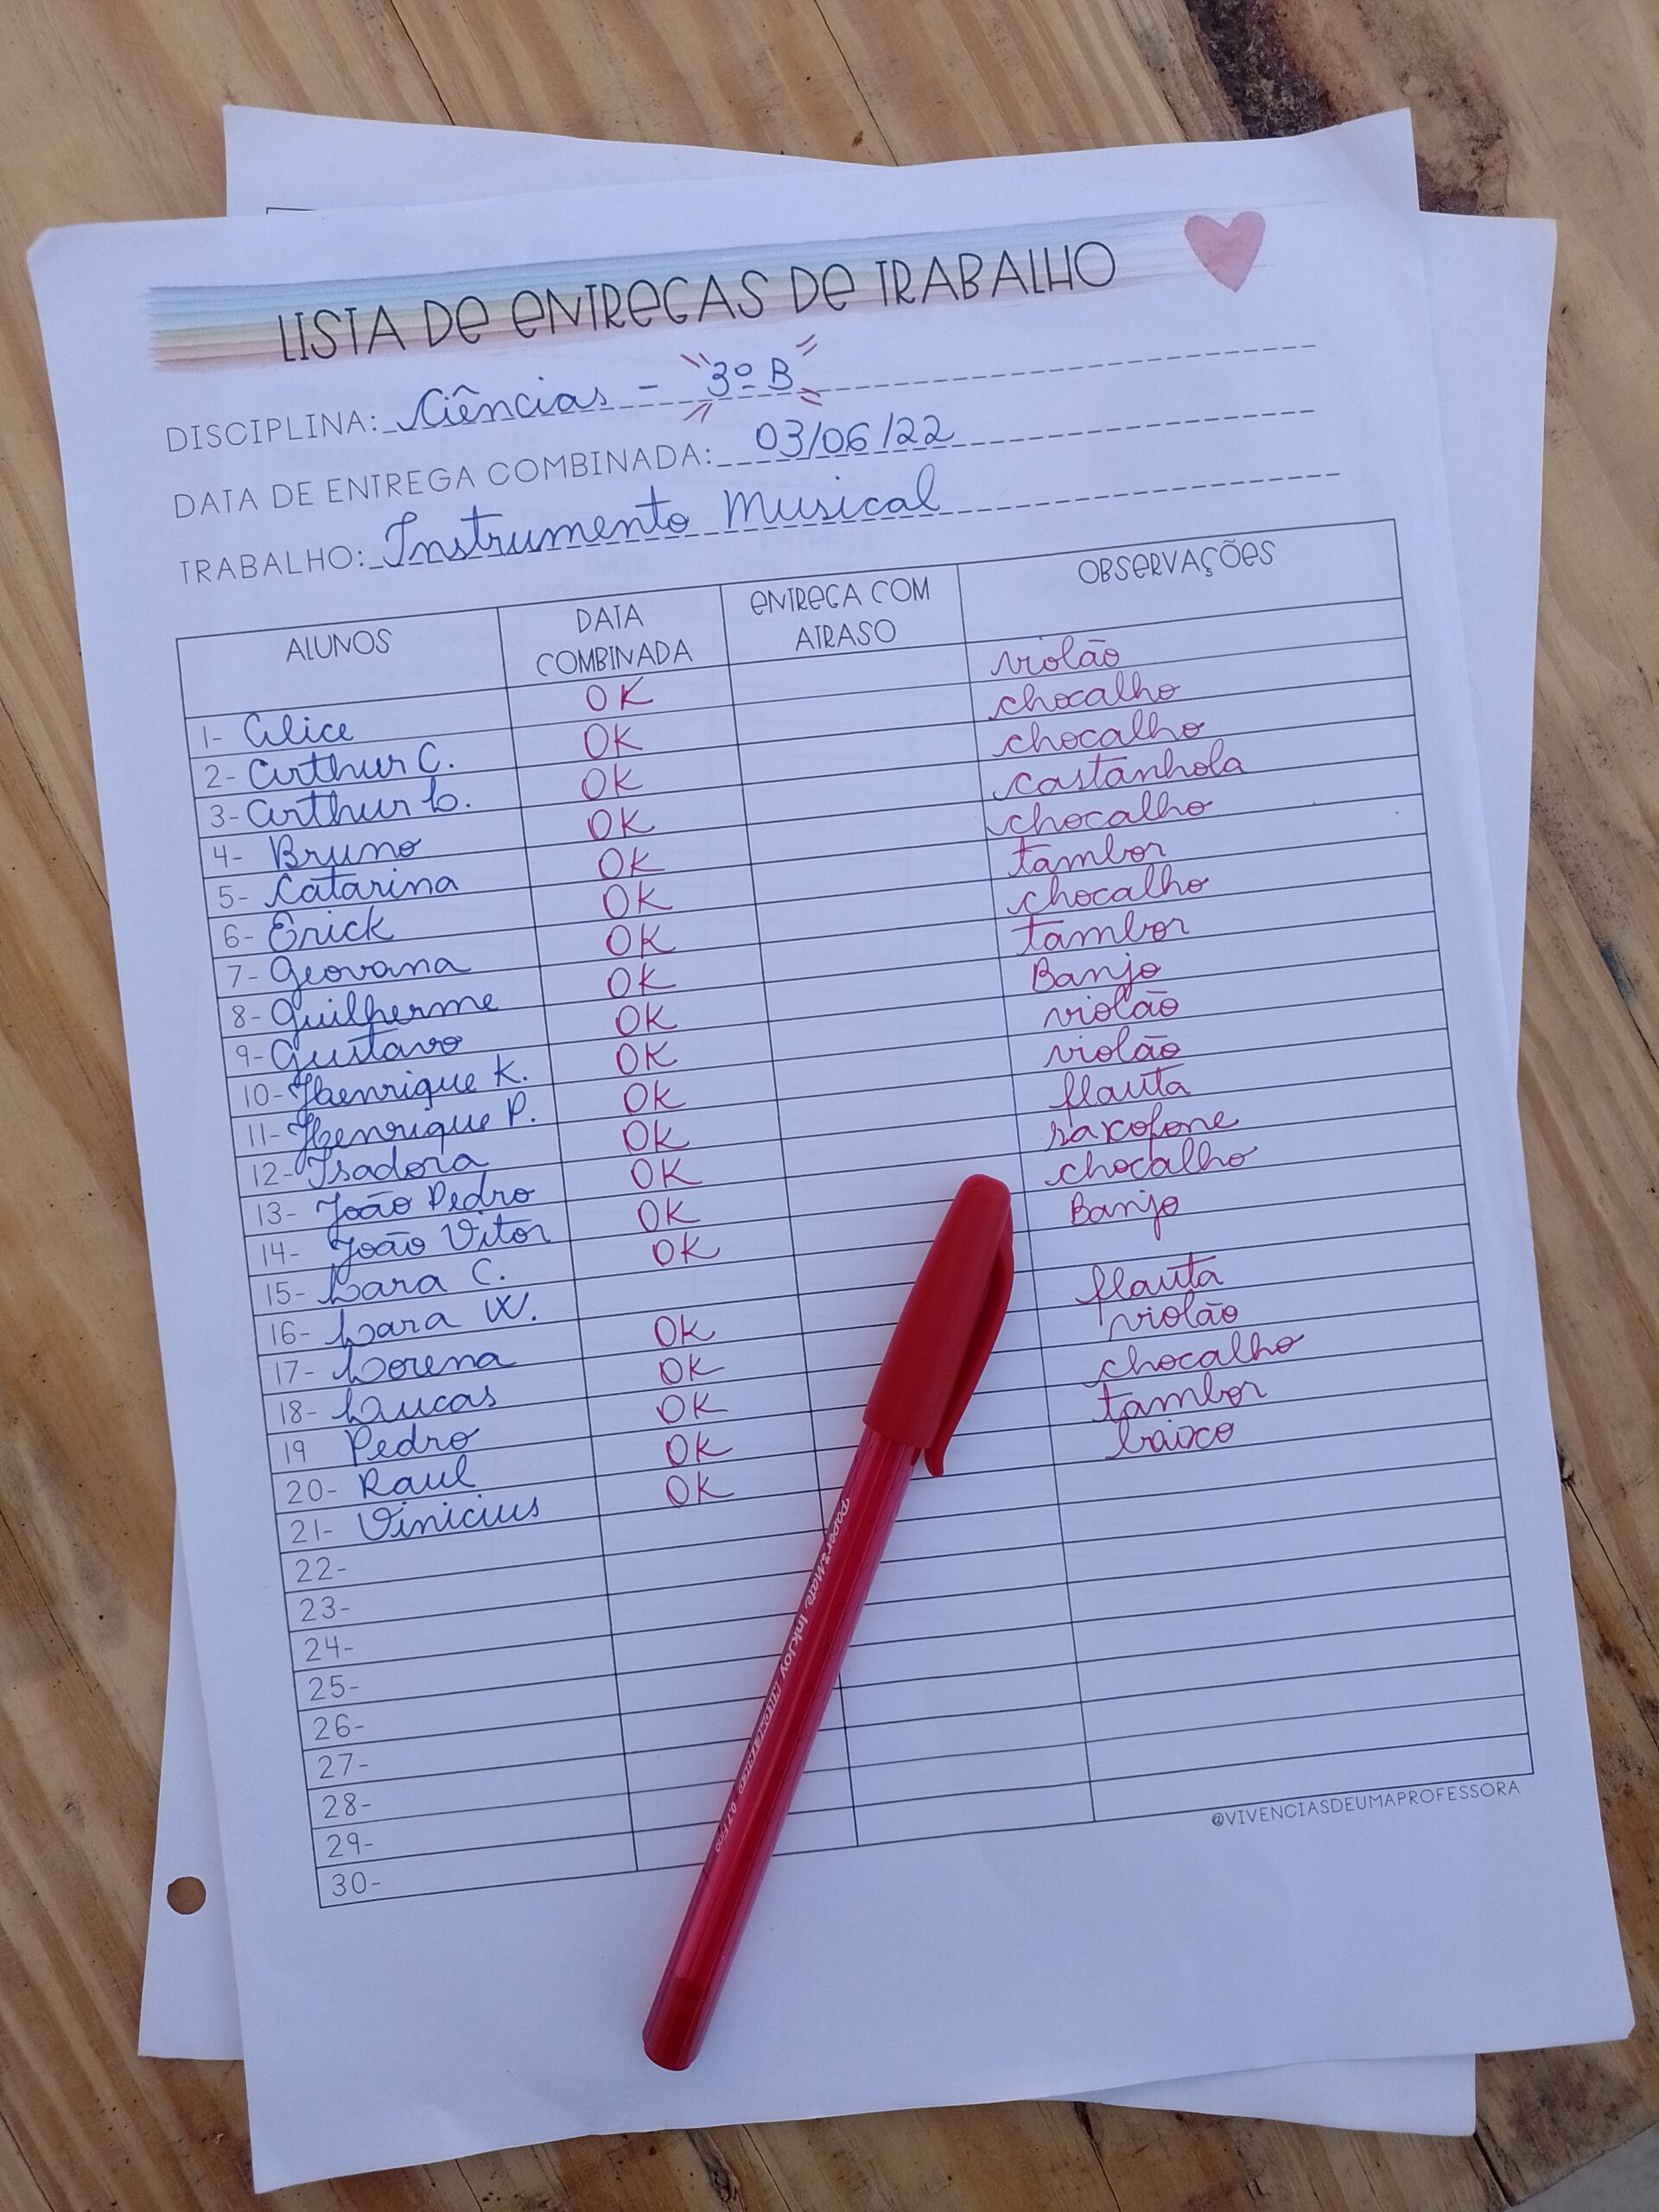 LISTA DE ENTREGAS DE TRABALHO
DISCIPLINA: Ciências - 3º B
DATA DE ENTREGA COMBINADA: 03/06/22
TRABALHO: Instrumento Musical
ALUNOS DATA COMBINADA ENTREGA COM ATRASO OBSERVAÇÕES
1- Alice OK violão
2- Arthur C. OK chocalho
3- Arthur L. OK chocalho
4- Bruno OK castanhola
5- Catarina OK chocalho
6- Erick OK tambor
7- Geovana OK chocalho
8- Guilherme OK tambor
9- Gustavo OK Banjo
10- Henrique K. OK violão
11- Henrique P. OK violão
12- Isadora OK flauta
13- João Pedro OK saxofone
14- João Vitor OK chocalho
15- Lara C. OK Banjo
16- Lara W.
17- Lorena OK flauta
18- Lucas OK violão
19 Pedro OK chocalho
20- Raul OK tambor
21- Vinicius OK baixo
22-
23-
24-
25-
26-
27-
28-
29-
30-
@VIVENCIASDEUMAPROFESSORA
Paper Mate InkJoy 0.7 Fino